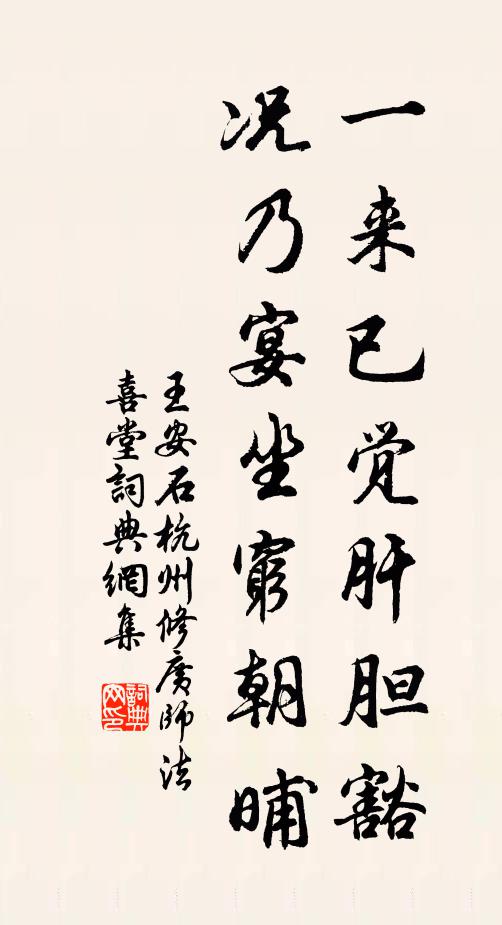 一来已觉肝胆豁
况乃宴坐穷朝晡
王安石杭州修廣師法
喜堂詞典網集
詞典网印